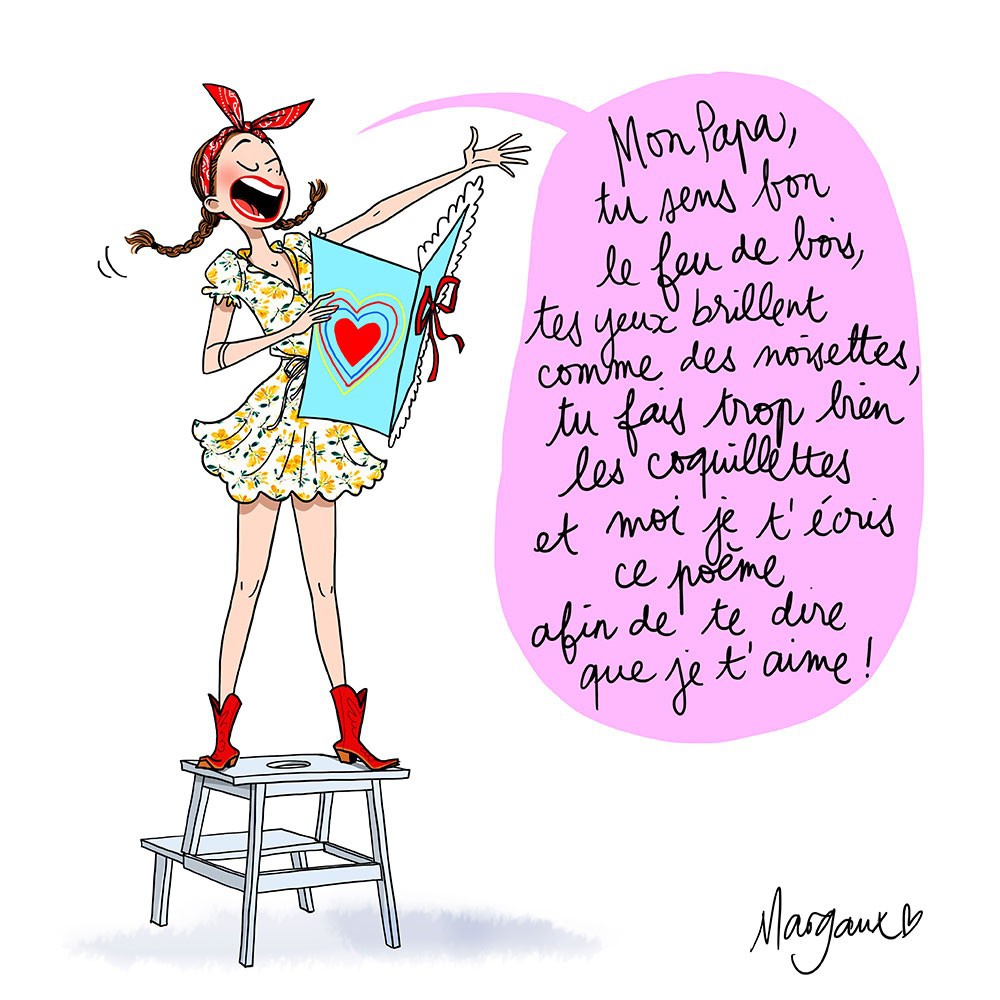 Mon Papa,
tu sens bon
le feu de bois,
tes yeux brillent
comme des noisettes,
tu fais trop bien
les coquillettes
et moi je t'écris
ce poème
afin de te dire
que je t'aime !
Margaux